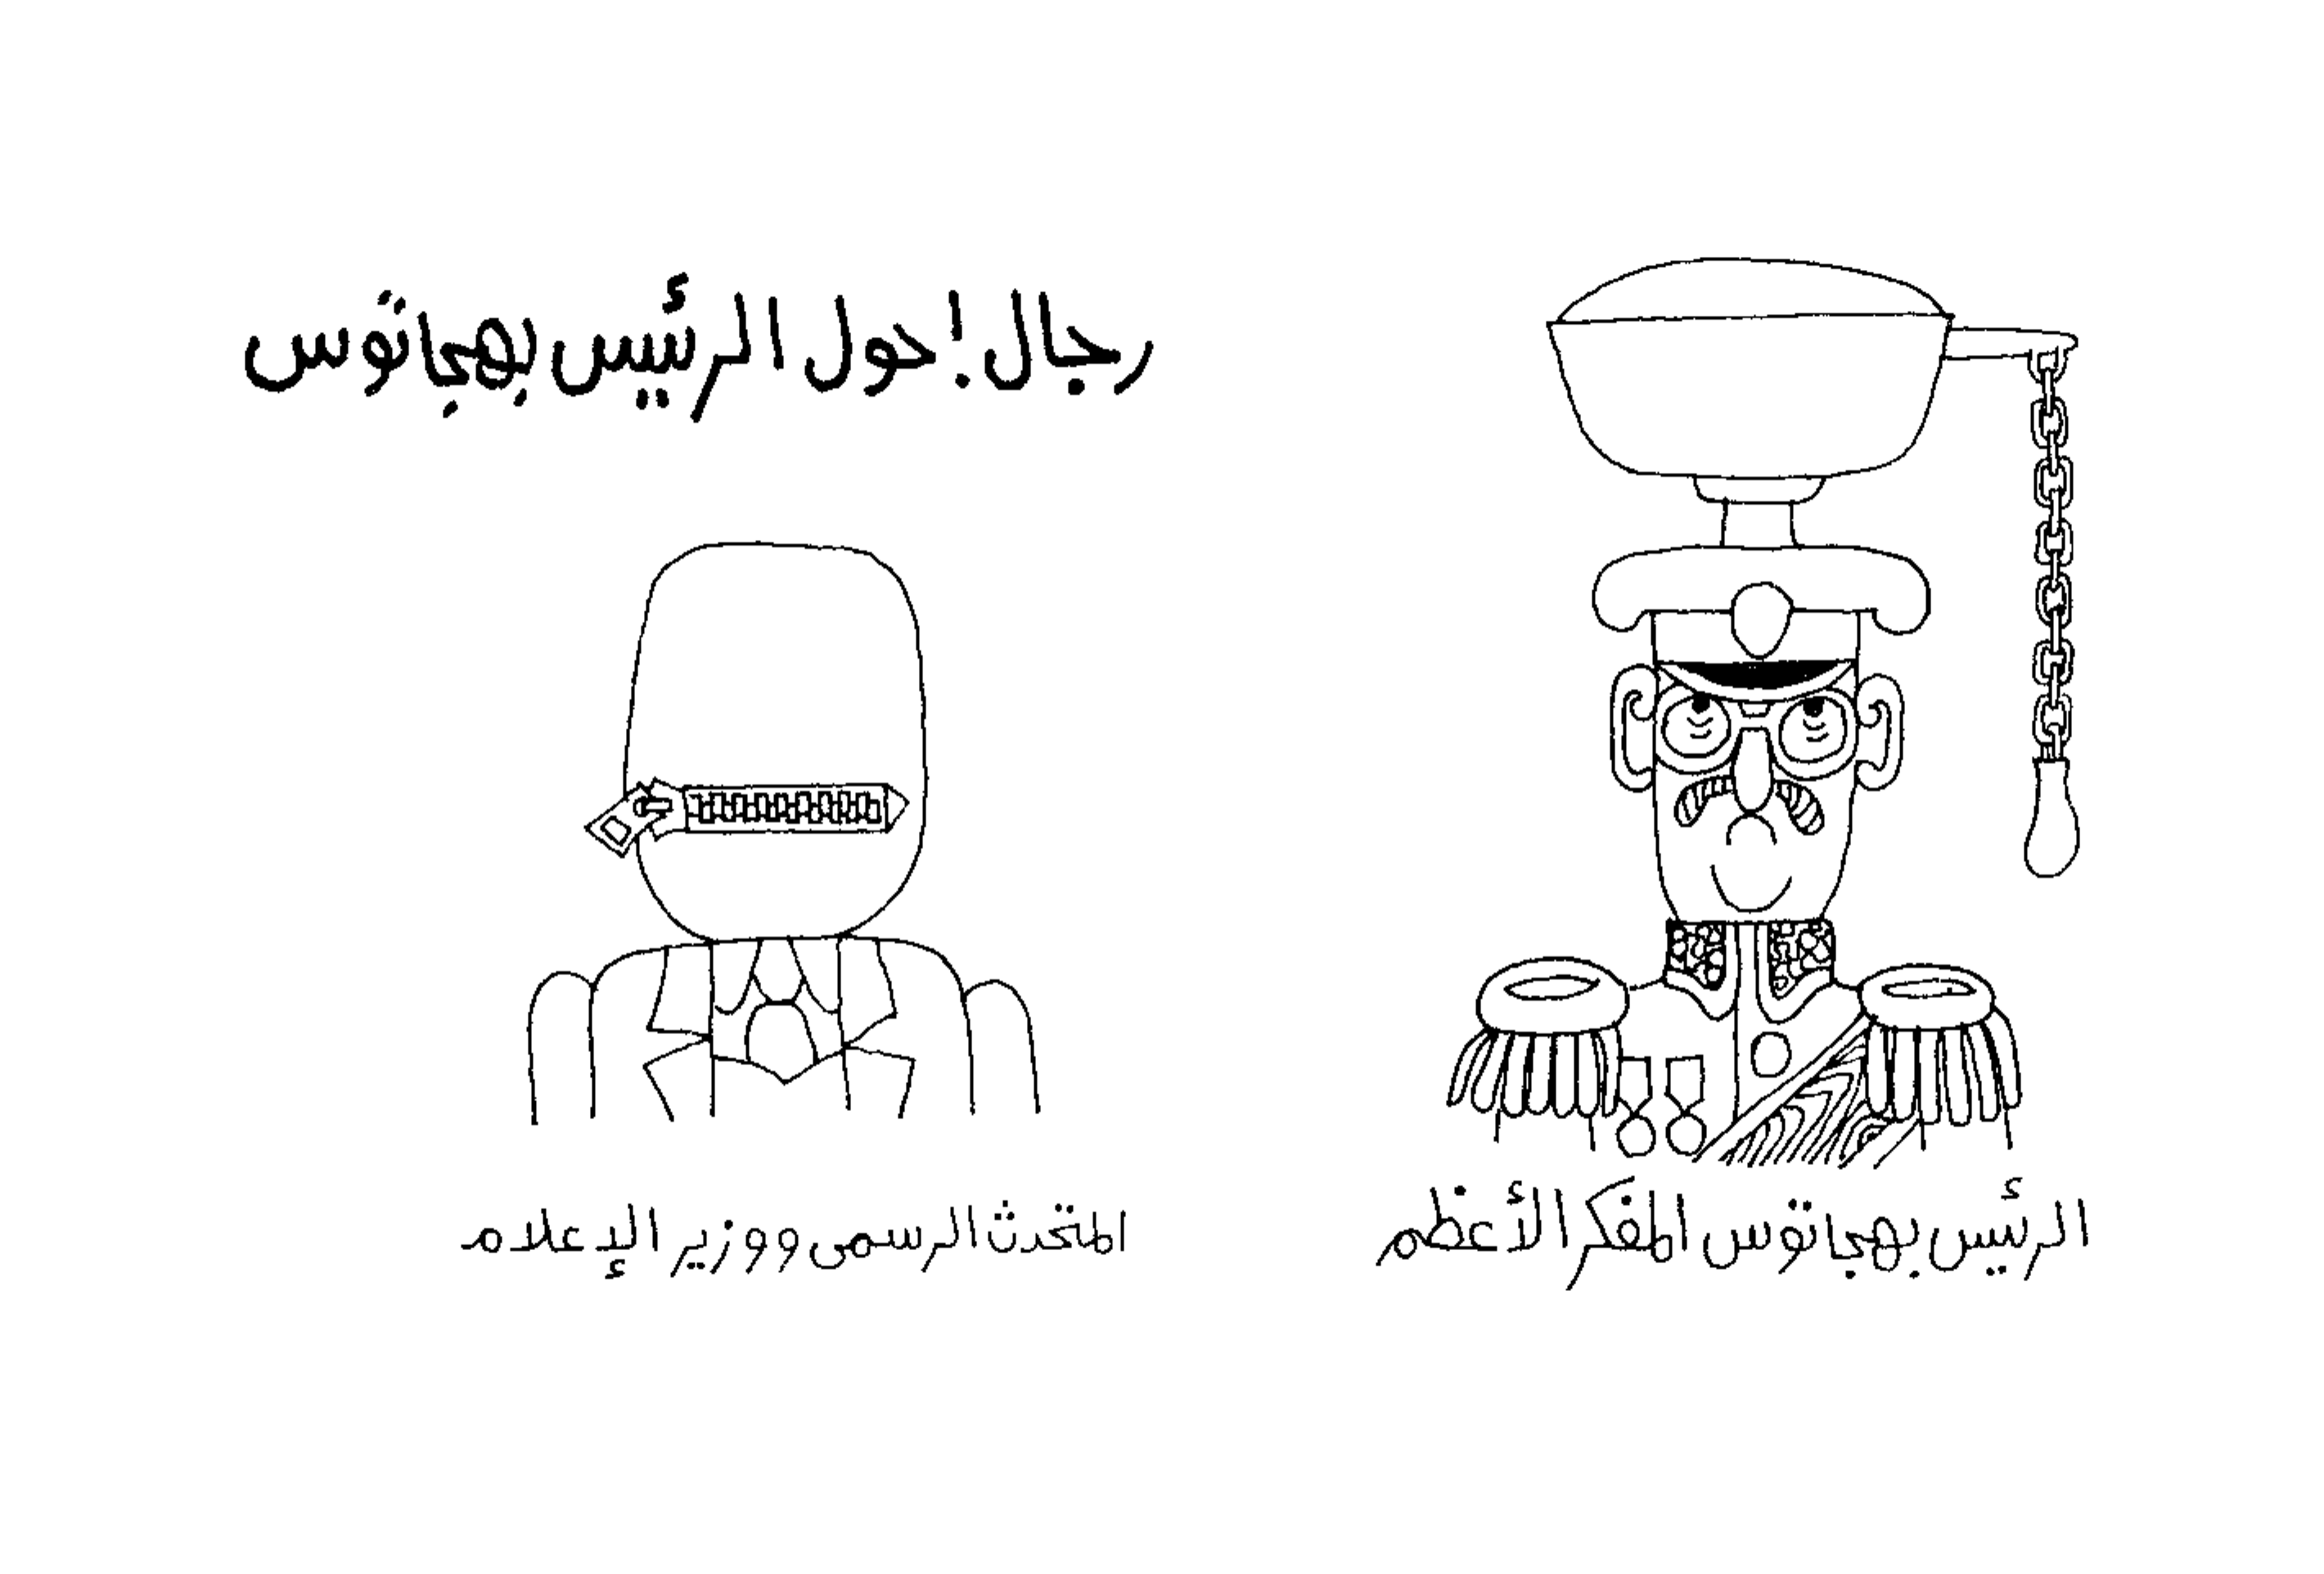 رجال! حول الرئيس بهجاتوس
الرئيس بهجاتوس المفكر الأعظم
المتحدث الرسمى ووزير الإعلام